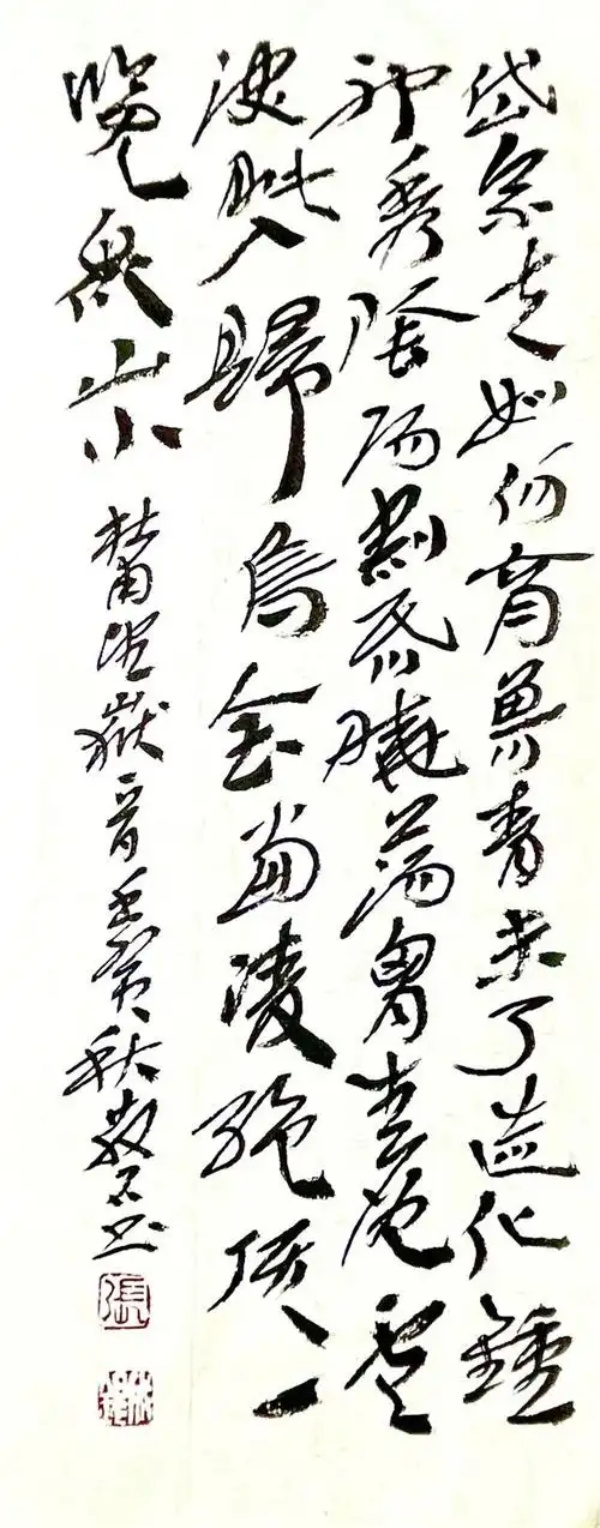 岱宗夫如何齊魯青未了造化鍾
神秀陰陽割昏曉蕩胸生層雲
決眥入歸鳥會當凌絕頂一
覽眾山小
杜甫望嶽一首壬寅秋
張